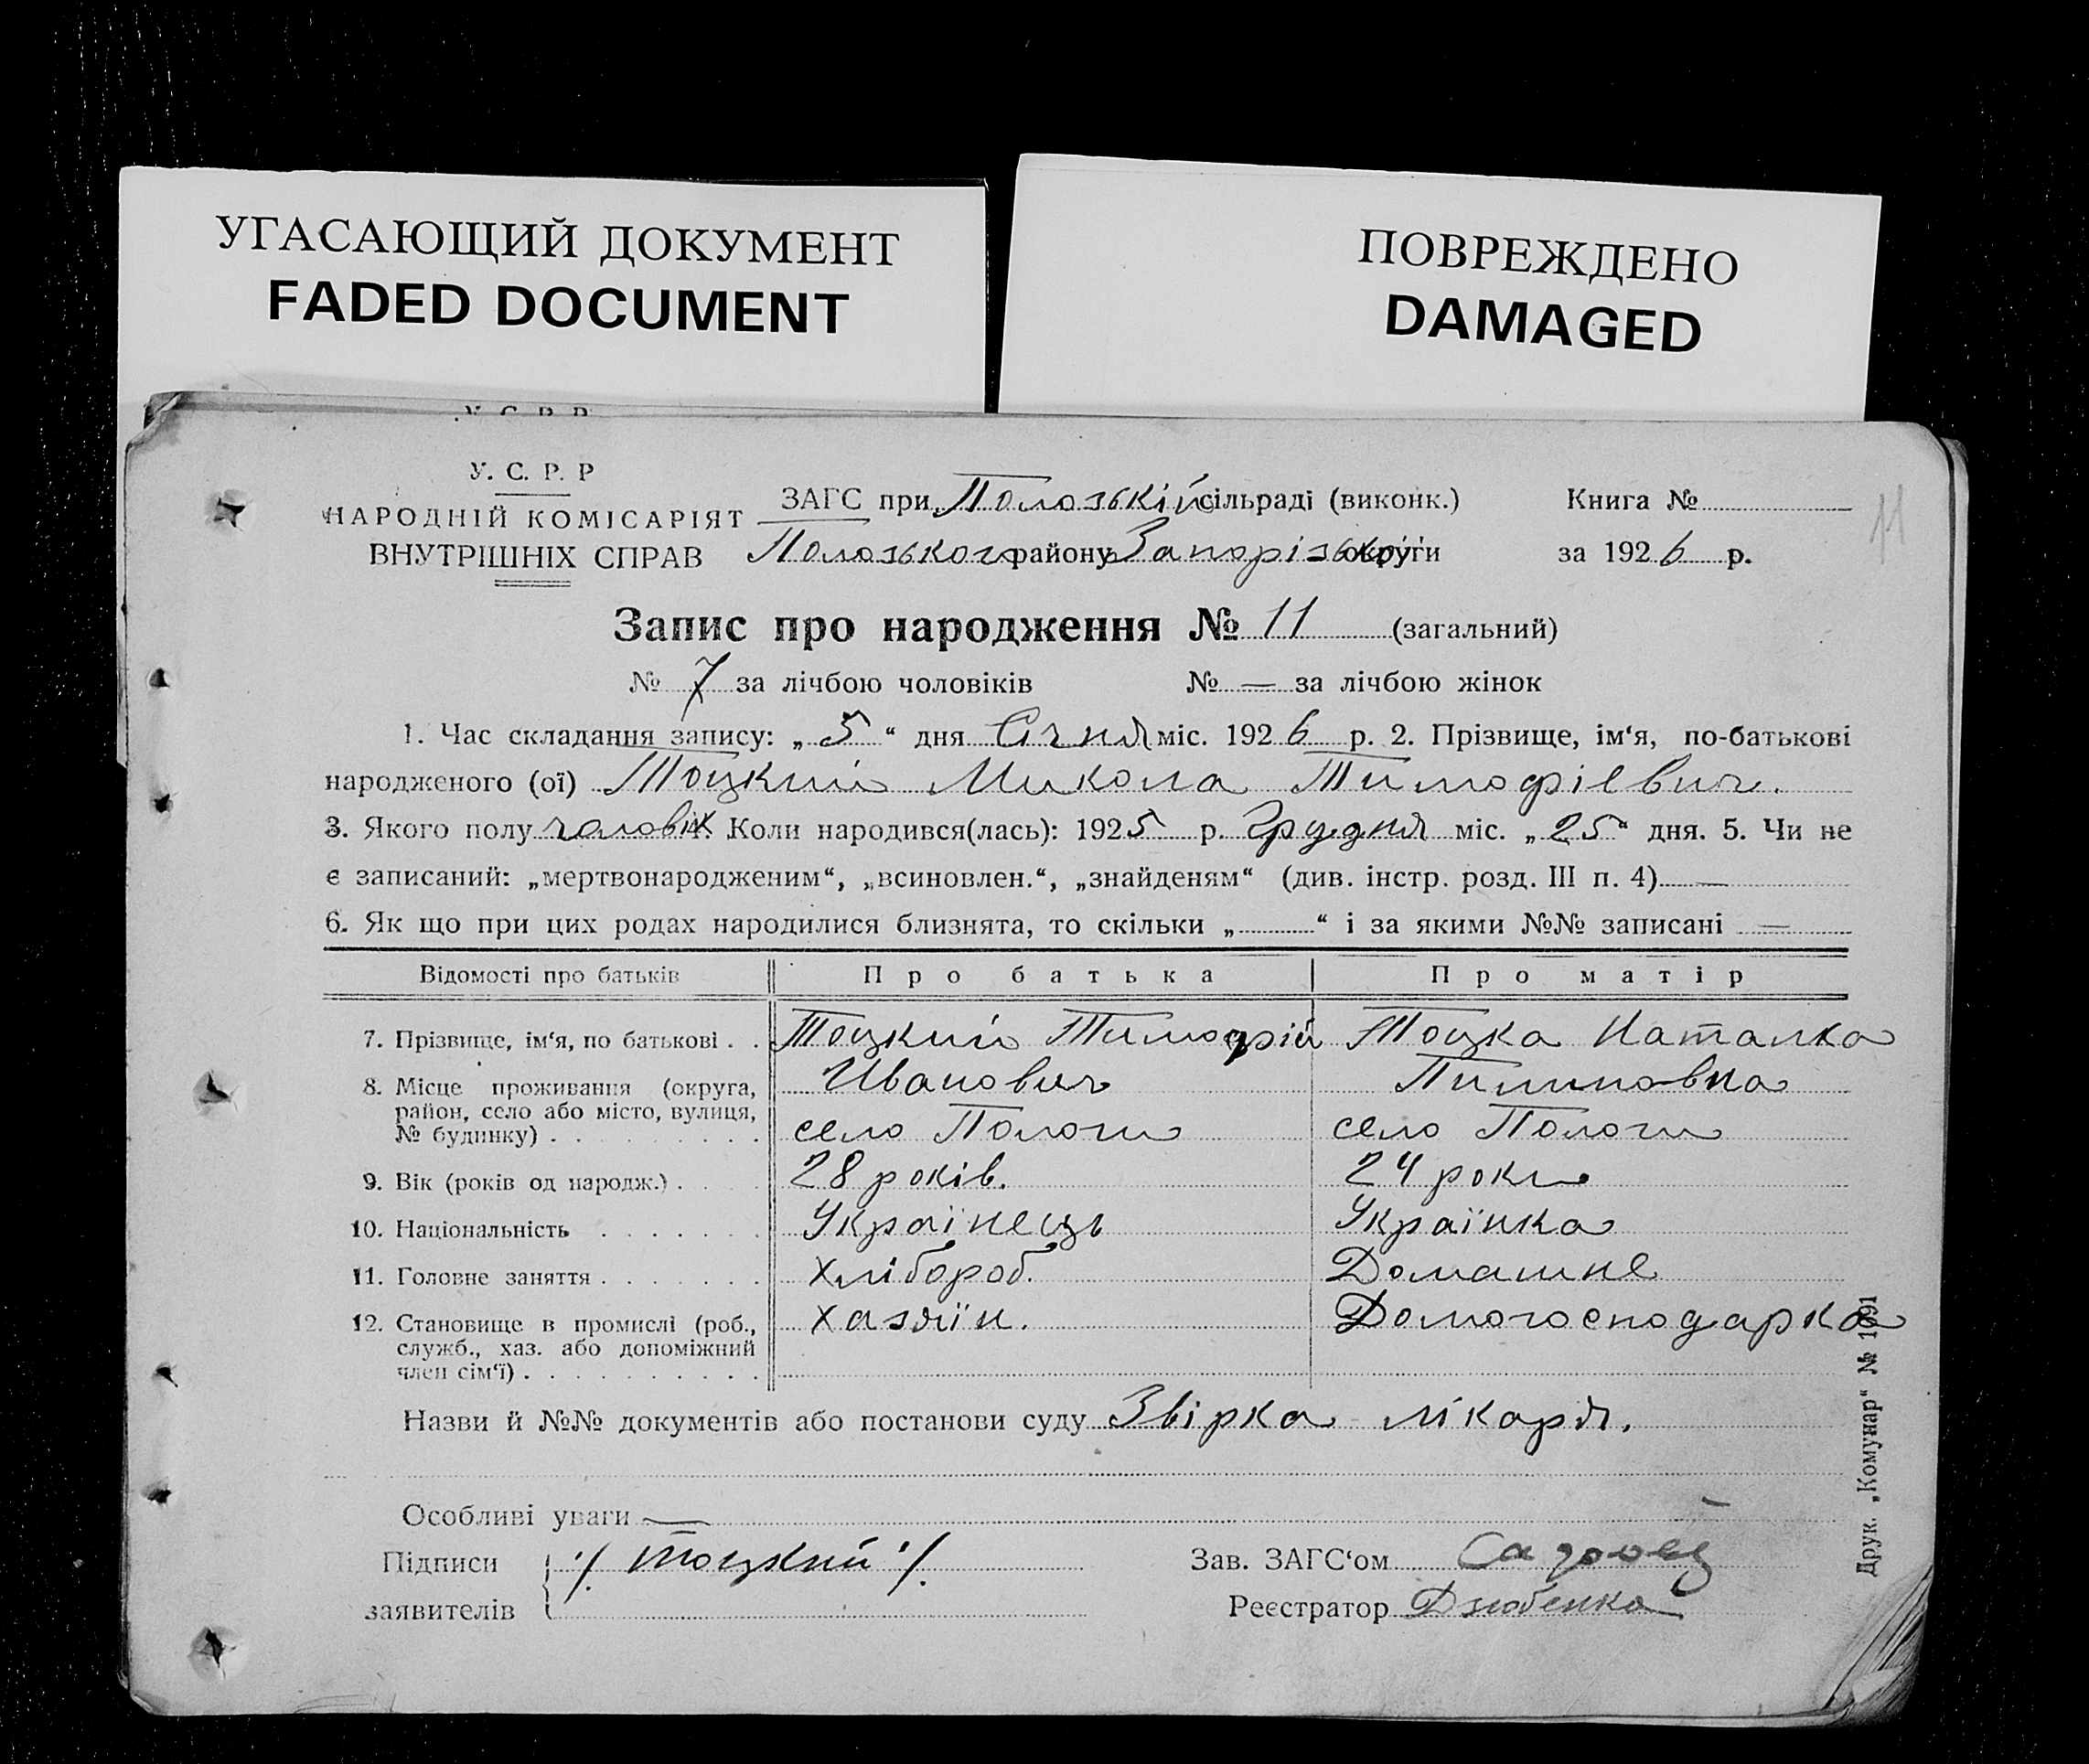 УГАСАЮЩИЙ ДОКУМЕНТ
FADED DOCUMENT
ПОВРЕЖДЕНО
DAMAGED
У. С. Р. Р
НАРОДНІЙ КОМІСАРІЯТ
ВНУТРІШНІХ СПРАВ
ЗАГС при Полозькій сільраді (виконк.)
Полозького району Запорізької округи
Книга №
за 1926 р.
11
Запис про народження № 11 (загальний)
№ 7 за лічбою чоловіків № — за лічбою жінок
1. Час складання запису: „5“ дня Січня міс. 1926 р. 2. Прізвище, ім‘я, по-батькові
народженого (ої) Тоцкий Микола Тимофієвич.
3. Якого полу чоловік 4. Коли народився(лась): 1925 р. Грудня міс. „25“ дня. 5. Чи не
є записаний: „мертвонародженим“, „всиновлен.“, „знайденям“ (див. інстр. розд. III п. 4) —
6. Як що при цих родах народилися близнята, то скільки „ “ і за якими №№ записані —
Відомості про батьків Про батька Про матір
7. Прізвище, ім‘я, по батькові . . Тоцкий Тимофій Тоцка Наталка
8. Місце проживання (округа, Иванович Пилиповна
район, село або місто, вулиця,
№ будинку) . село Пологи село Пологи
9. Вік (років од народж.) . 28 років. 24 роки
10. Національність Українець Українка
11. Головне заняття . Хлібороб. Домашнє
12. Становище в промислі (роб., Хазяїн. Домогосподарка
служб., хаз. або допоміжний
член сім‘ї) .
Назви й №№ документів або постанови суду Звірка лікаря.
Особливі уваги —
Підписи /. Тоцкий /. Зав. ЗАГС‘ом
заявителів Реєстратор Дзюбенко
Друк. „Комунар“ № 1091